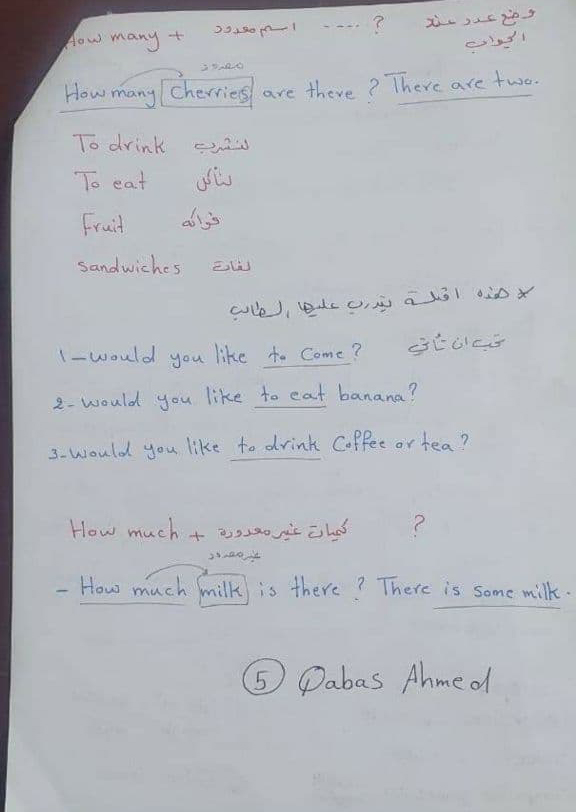 How many + اسم معدود ---- ? وضع عدد عند
الجواب
معدود
How many Cherries are there ? There are two.
To drink لنشرب
To eat لنأكل
Fruit فواكه
Sandwiches لفات
* هذه امثلة يتدرب عليها الطالب
1-would you like to Come? تحب ان تأتي
2-would you like to eat banana?
3-would you like to drink Coffee or tea?
How much + كميات غير معدودة ?
غير معدود
- How much milk is there ? There is some milk.
5 Qabas Ahmed